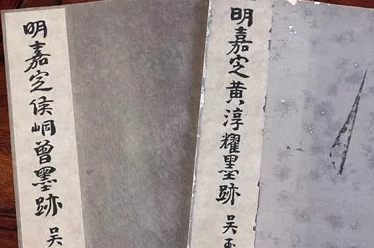 明嘉定侯峒曾墨跡 吴
明嘉定黄淳耀墨跡 吴